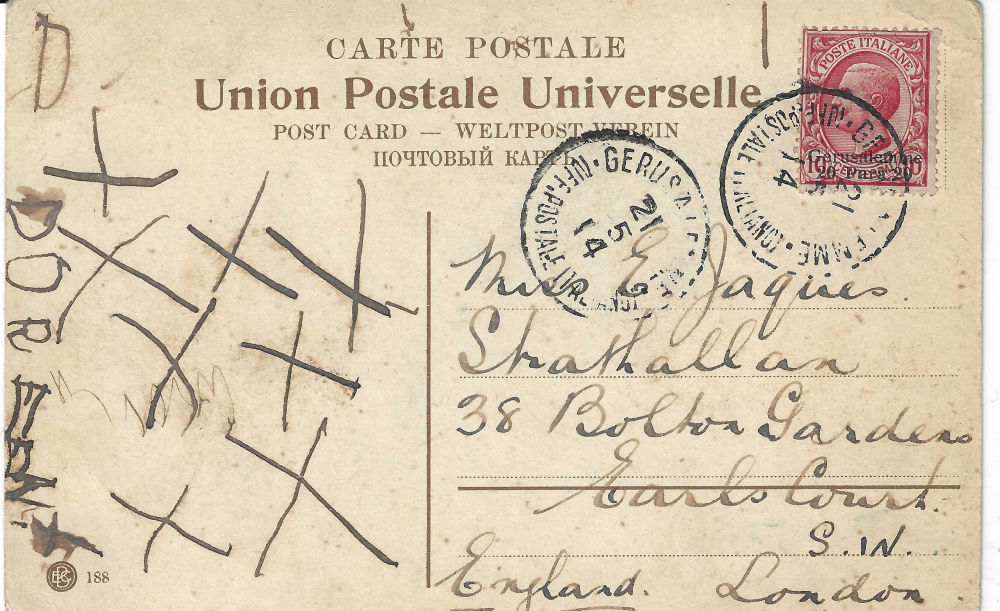 CARTE POSTALE
Union Postale Universelle
POST CARD — WELTPOST-VEREIN
ПОЧТОВЫЙ КАРТЬ
POSTE ITALIANE
10
Gerusalemme
20 Para 20
GERUSALEMME
UFF. POSTALE ITALIANO
21
5
14
GERUSALEMME
UFF. POSTALE ITALIANO
21
14
E. Jaques.
Strathallan
38 Bolton Gardens
Earls Court.
S.W.
England. London.
D
DOREEN
188